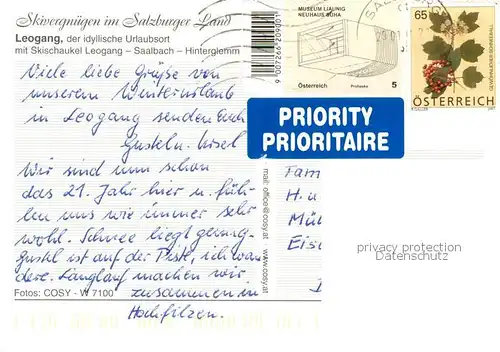 Skivergnügen im Salzburger Land
Leogang, der idyllische Urlaubsort
mit Skischaukel Leogang – Saalbach – Hinterglemm
Viele liebe Grüße von
unserem Winterurlaub
in Leogang senden Euch
Gusteln. Insel
Wir sind nun schon
das 21. Jahr hier u. füh-
len uns wie immer sehr
wohl. Schnee liegt genug.
Gustl ist auf der Piste, ich wan
dere. Langlauf machen wir
zusammen in
Hochfilzen.
Fotos: COSY - W 7100
9007266209201
mail: office@cosy.at www.cosy.at
MUSEUM LIAUNIG
NEUHAUS SUHA
Österreich
5
65
ÖSTERREICH
PRIORITY
PRIORITAIRE
Fam
H. u
Mü
Eis
privacy protection
Datenschutz